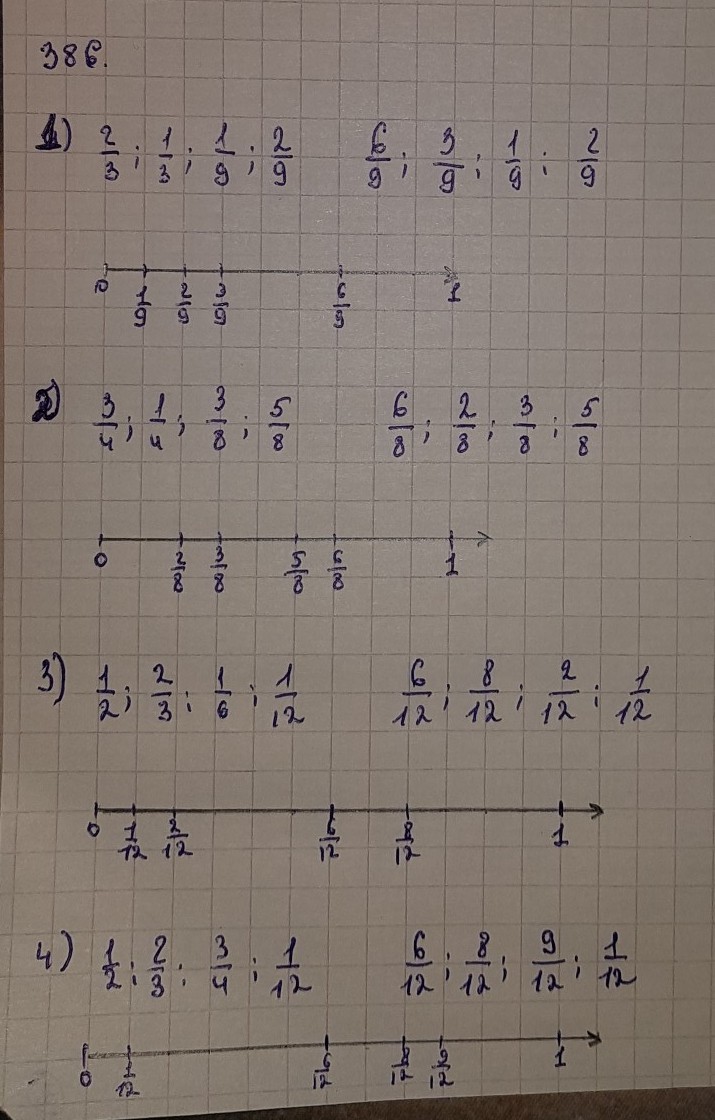 386.
1) 2/3 ; 1/3 ; 1/9 ; 2/9 6/9 ; 3/9 ; 1/9 ; 2/9
0 1/9 2/9 3/9 6/9 1
2) 3/4 ; 1/4 ; 3/8 ; 5/8 6/8 ; 2/8 ; 3/8 ; 5/8
0 2/8 3/8 5/8 6/8 1
3) 1/2 ; 2/3 ; 1/6 ; 1/12 6/12 ; 8/12 ; 2/12 ; 1/12
0 1/12 2/12 6/12 8/12 1
4) 1/2 ; 2/3 ; 3/4 ; 1/12 6/12 ; 8/12 ; 9/12 ; 1/12
0 1/12 6/12 8/12 9/12 1